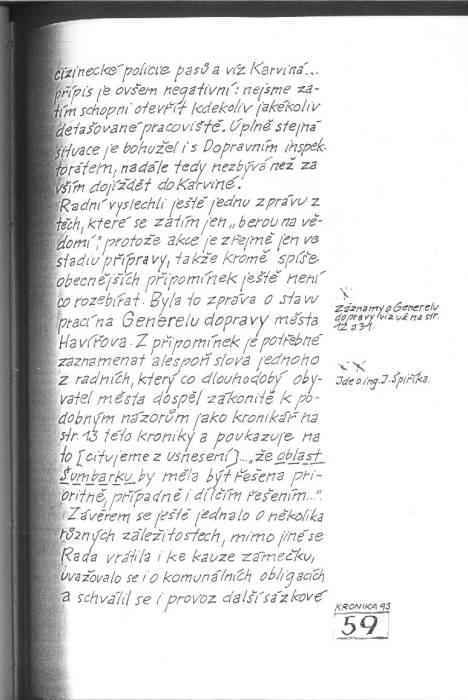 cizinecké policie pasů a víz Karviná...
přípis je ovšem negativní: nejsme za-
tím schopni otevřít kdekoliv jakékoliv
detašované pracoviště. Úplně stejná
situace je bohužel i s Dopravním inspek-
torátem, nadále tedy nezbývá než za
vším dojíždět do Karviné.
Radní vyslechli ještě jednu zprávu z
těch, které se zatím jen „berou na vě-
domí", protože akce je zřejmě jen ve
stadiu přípravy, takže kromě spíše
obecnějších připomínek ještě není
co rozebírat. Byla to zpráva o stavu
prací na Generelu dopravy města
Havířova. Z připomínek je potřebné
zaznamenat alespoň slova jednoho
z radních, který co dlouhodobý oby-
vatel města dospěl zákonitě k po-
dobným názorům jako kronikář na
str. 13 této kroniky a poukazuje na
to [citujeme z usnesení]...„že oblast
Šumbarku by měla být řešena pri-
oritně, případně i dílčím řešením...".
Závěrem se ještě jednalo o několika
různých záležitostech, mimo jiné se
Rada vrátila i ke kauze zámečku,
uvažovalo se i o komunálních obligacích
a schválil se i provoz další sázkové
x
Záznamy o Generelu
dopravy (viz už na str.
12 a 34.
x x
Jde o ing. J. Špiříka.
KRONIKA 93
59